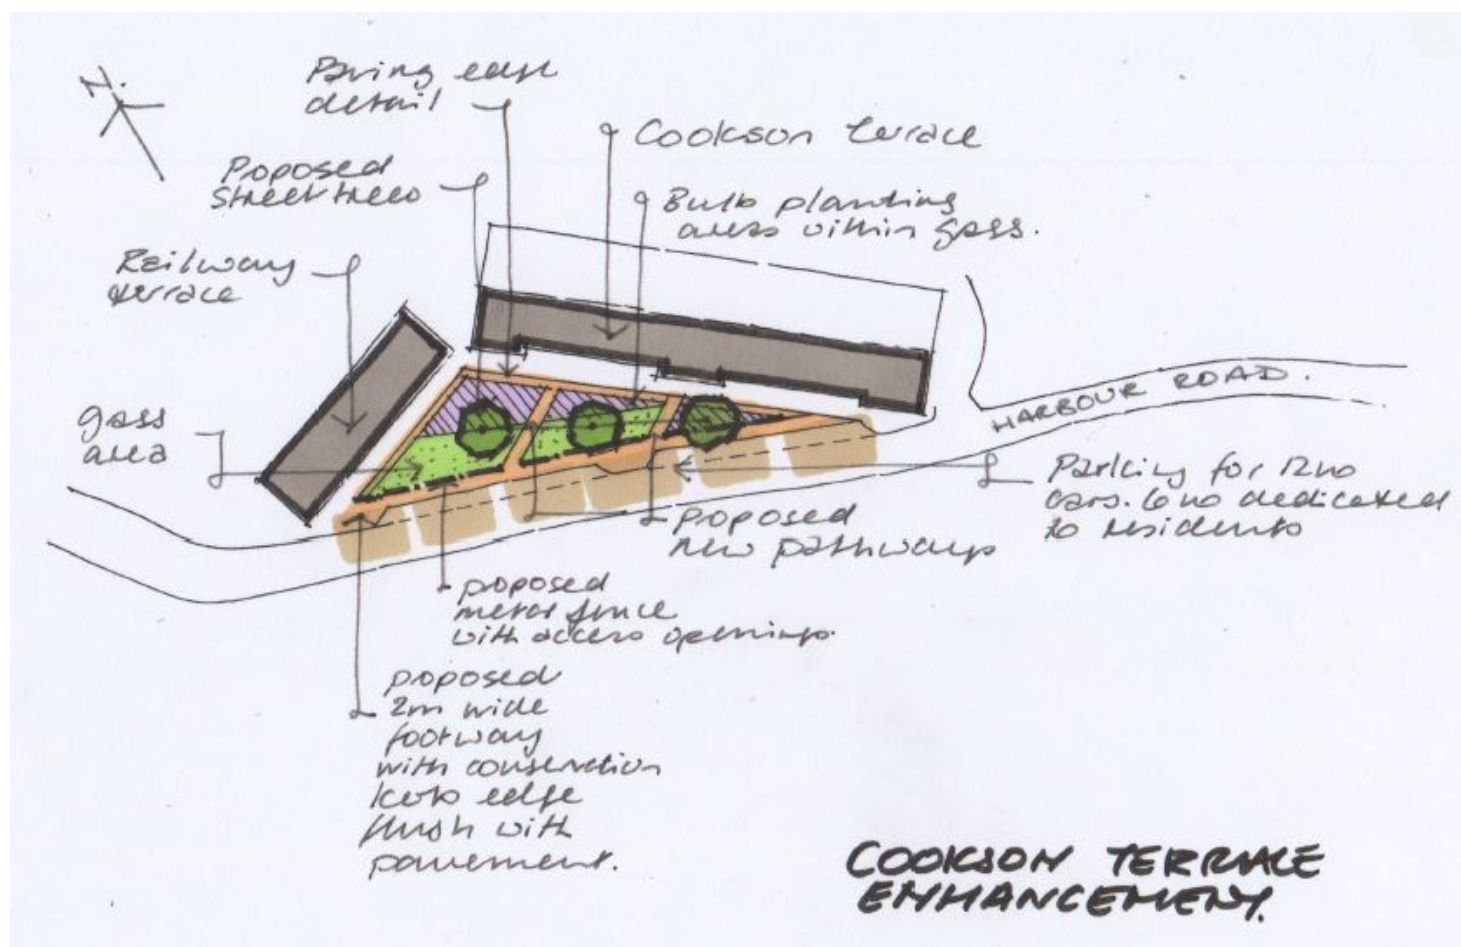 N.
Paving edge
detail
Cookson terrace
Poposed
street trees
Bulb planting
areas within gass.
Railway
terrace
gass
area
HARBOUR ROAD.
Parking for 12no
cars. 6no dedicated
to residents
poposed
new pathways
poposed
metal fence
with access openings.
poposed
2m wide
footway
with conservation
kerb edge
flush with
pavement.
COOKSON TERRACE
ENHANCEMENT.